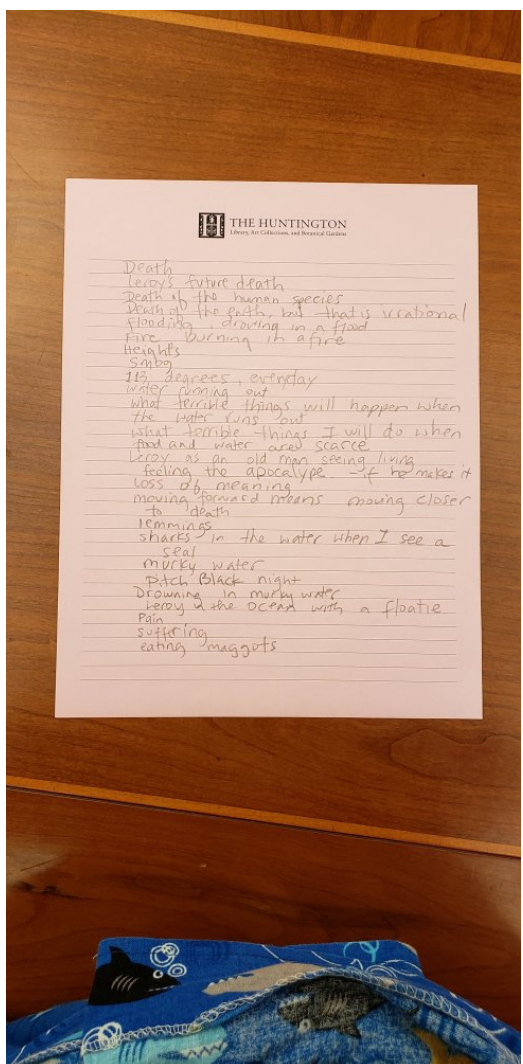 THE HUNTINGTON
Library, Art Collections, and Botanical Gardens
Death
Leroy's future death
Death of the human species
Death of the earth, but that is irrational
flooding, droving in a flood
Fire burning in a fire
Heights
Smog
113 degrees, everyday
water running out
what terrible things will happen when
the water runs out
what terrible things I will do when
food and water are scarce
Leroy as an old man seeing living
feeling the apocalypse if he makes it
loss of meaning
moving forward means moving closer
to death
lemmings
sharks in the water when I see a
seal
murky water
Pitch Black night
Drowning in murky water
Leroy in the ocean with a floatie
Pain
suffering
eating maggots